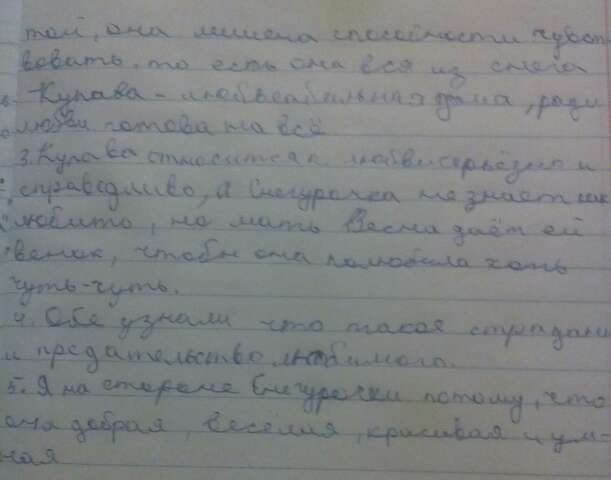 той, она лишена способности чувст-
вовать, то есть она вся из снега
Купава - любвеобильная дама, ради
любви готова на всё
3. Купава относится к любви серьёзно и
справедливо, а Снегурочка не знает как
любить, но мать Весна даёт ей
венок, чтобы она полюбила хоть
чуть-чуть.
4. Обе узнали что такое страдани
и предательство любимого.
5. Я на стороне Снегурочки потому, что
она добрая, весёлая, красивая и ум-
ная